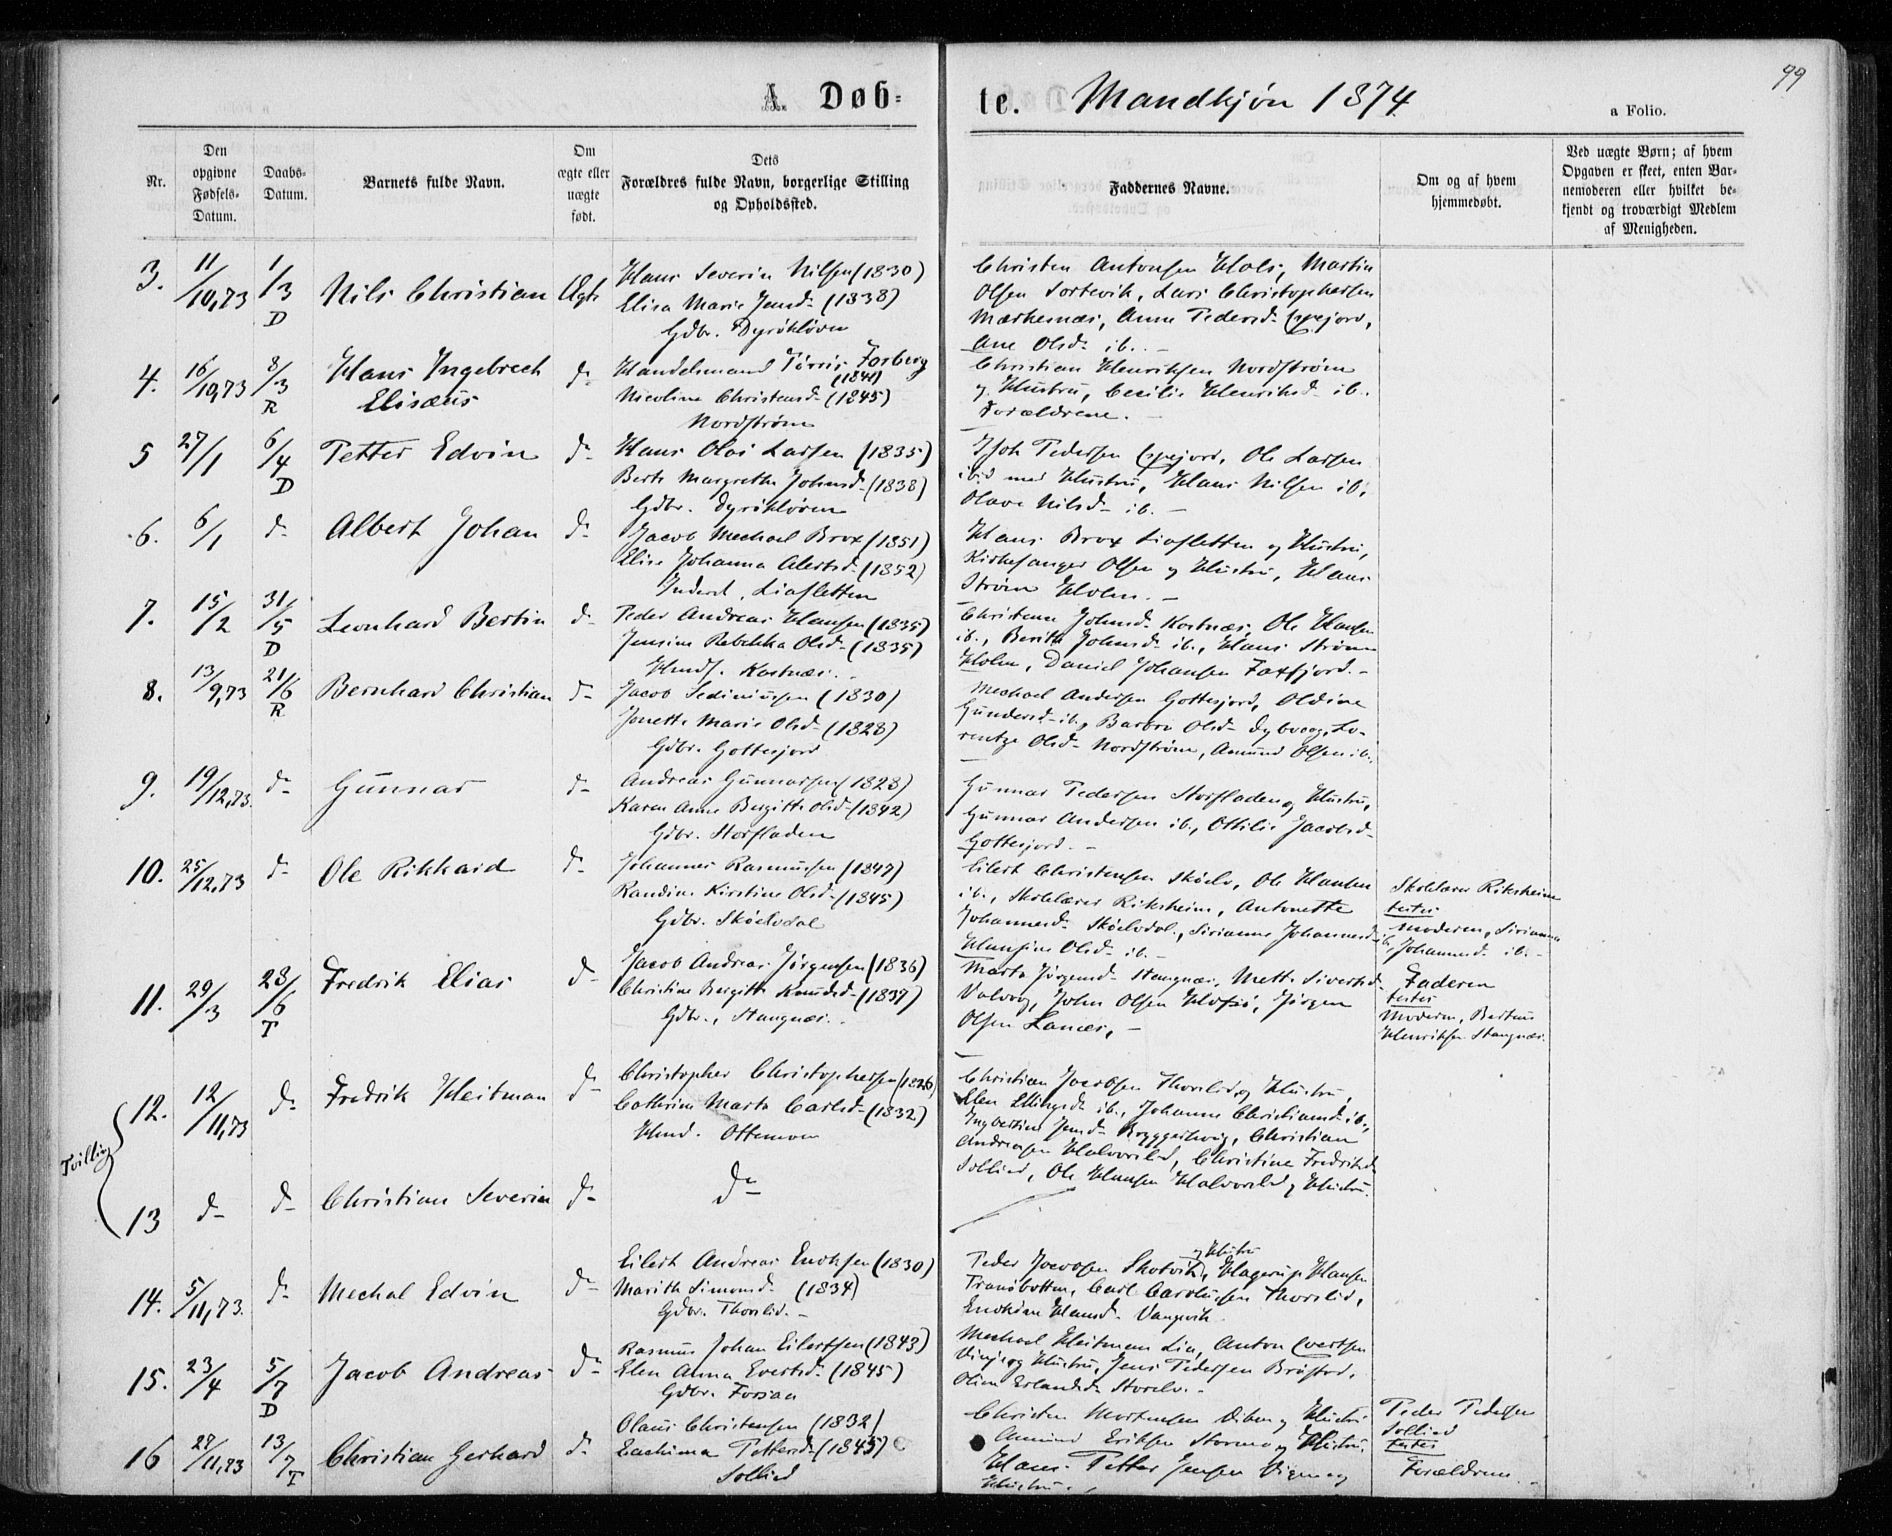 99
A. Døb-
te. Mandkjøn 1874
a Folio.
Nr.
Den opgivne Fødsels-Datum.
Daabs-Datum.
Barnets fulde Navn.
Om ægte eller uægte født.
Dets Forældres fulde Navn, borgerlige Stilling og Opholdssted.
Faddernes Navne.
Om og af hvem hjemmedøbt.
Ved uægte Børn; af hvem Opgaven er skeet, enten Barnemoderen eller hvilket bekjendt og troværdigt Medlem af Menigheden.
3. 11/10,73 1/3 D Nils Christian Ægte
Hans Severin Nilsen (1830)
Elisa Marie Jensd. (1838)
Gdbr. Dyröklöven
Christen Antonsen Hols, Martin
Olsen Sortevik, Lars Christophersen
Mærkenæs, Anne Pedersd.
Ane Olsd. ib. -
4. 16/10,73 8/3 R Hans Ingebrech
Elisæus d-
Handelsmand Forberg
(1841)
Nicoline Christensd. (1845)
Nordstrøm
Christian Henriksen Nordstrøm
og Hustru, Cecilie Henriksd. ib.
Forældrene. -
5 27/1 6/4 D Petter Edvin d-
Hans Olai Larsen (1835)
Berit Margrethe Johnsd. (1838)
Gdbr. Dyröklöven
Pedersen Ole Larsen
ibid med Hustru, Hans Nilsen ib.
Olava Nilsd. ib. -
6. 6/1 d- Albert Johan d-
Jacob Mechael Brox (1851)
Elise Johanna (1852)
Inderst, Liasletten
Hans Brox Liasletten og Hustru,
Kirkesanger Olsen og Hustru, Hans
Strøm Holm. -
7. 15/2 31/5 D Leonhard Bertin d-
Peder Andreas Hansen (1835)
Jensine Rebekka Olsd. (1835)
Kastnæs.
Johnsd. Kastnæs, Ole Hansen
ib., Berith Johnsd. ib., Hans Strøm
Holm, Daniel Johansen Faxfjord. -
8. 13/9,73 21/6 R Bernhard Christian d-
Jacob (1830)
Jonette Marie Olsd. (1828)
Gdbr. Gottesjord
Mechael Andersen Gottesjord, Oldine
Gundersd. ib., Barbro Olsd. Lo-
rentze Olsd. Nordstrøm, Amund Olsen ib.
9. 19/12,73. d- Gunnar d-
Andreas Gunnarsen (1828)
Karen Anne Bergitte Olsd. (1842)
Gdbr. Storsladen
Gunnar Pedersen Storsladen og Hustru,
Gunnar Andersen ib., Ottilie Jacobsd.
Gottesjord. -
10. 25/12,73 d- Ole Rikkard d-
Johannes Rasmussen (1847)
Randine Kirstine Olsd. (1845)
Gdbr. Skøelvdal
Eilert Christensen Skøelv, Ole Hansen
ib., Skolelærer Riksheim, Antonette
Johannesd. Skøelvdal, Sirianna Johannesd. ib.,
Hansine Olsd. ib. -
Skolelærer Riksheim
testes
Moderen, Sirianna
Johannesd. ib. -
11. 29/3 28/6 T Fredrik Elias d-
Jacob Andreas Jørgensen (1836)
Christine Bergitte Knudsd. (1837)
Gdbr., Stangnæs.
Marta Jørgensd. Stangnæs, Mette Sivertsd.
Valvaag, John Olsen Jørgen
Olsen Lanæs, -
Faderen
testes
Moderen, Berteus
Henriksen Stangnæs.
Tvilling
12. 12/11,73 d- Fredrik Heitman d-
Christopher Christophersen (1826)
Cathrine Marta Carlsd. (1832)
Hmd. Ottermoen
Christian Jacobsen Thorslid og Hustru,
Elen Ellingsd. ib., Johanna Christiansd. ib.,
Jensd. Christian
Andreassen Halvorslid, Christine Fredriksd.
Sollied, Ole Hansen Halvorslid og Hustru.
13 d- d- Christian Severin d- d-
14. 5/11,73. d- Mechal Edvin d-
Eilert Andreas Enoksen (1830)
Marith Simonsd. (1834)
Gdbr. Thorslid. -
Peder Jacobsen Skotvik og Hustru, Hagerup Hansen
Tranöbotten, Carl Carolussen Thorslid,
Hansd. Vangsvik.
15. 23/4 5/7 D Jacob Andreas d-
Rasmus Johan Eilertsen (1843)
Elen Anna Evertsd. (1845)
Gdbr. Forsaa
Mechael Heitman Lia, Anton Evertsen
og Hustru, Jens Pedersen Brøstad,
Olina Erlandsd. Storelv. -
16 27/11,73 13/7 T Christian Gerhard d-
Olaus Christensen (1832)
Pettersd. (1845)
Sollied
Christen Mortensen og Hustru
Amund Eriksen og Hustru,
Hans Petter Jensen og
Hustru.
Peder Pedersen
Sollied
testes
Forældrene. -